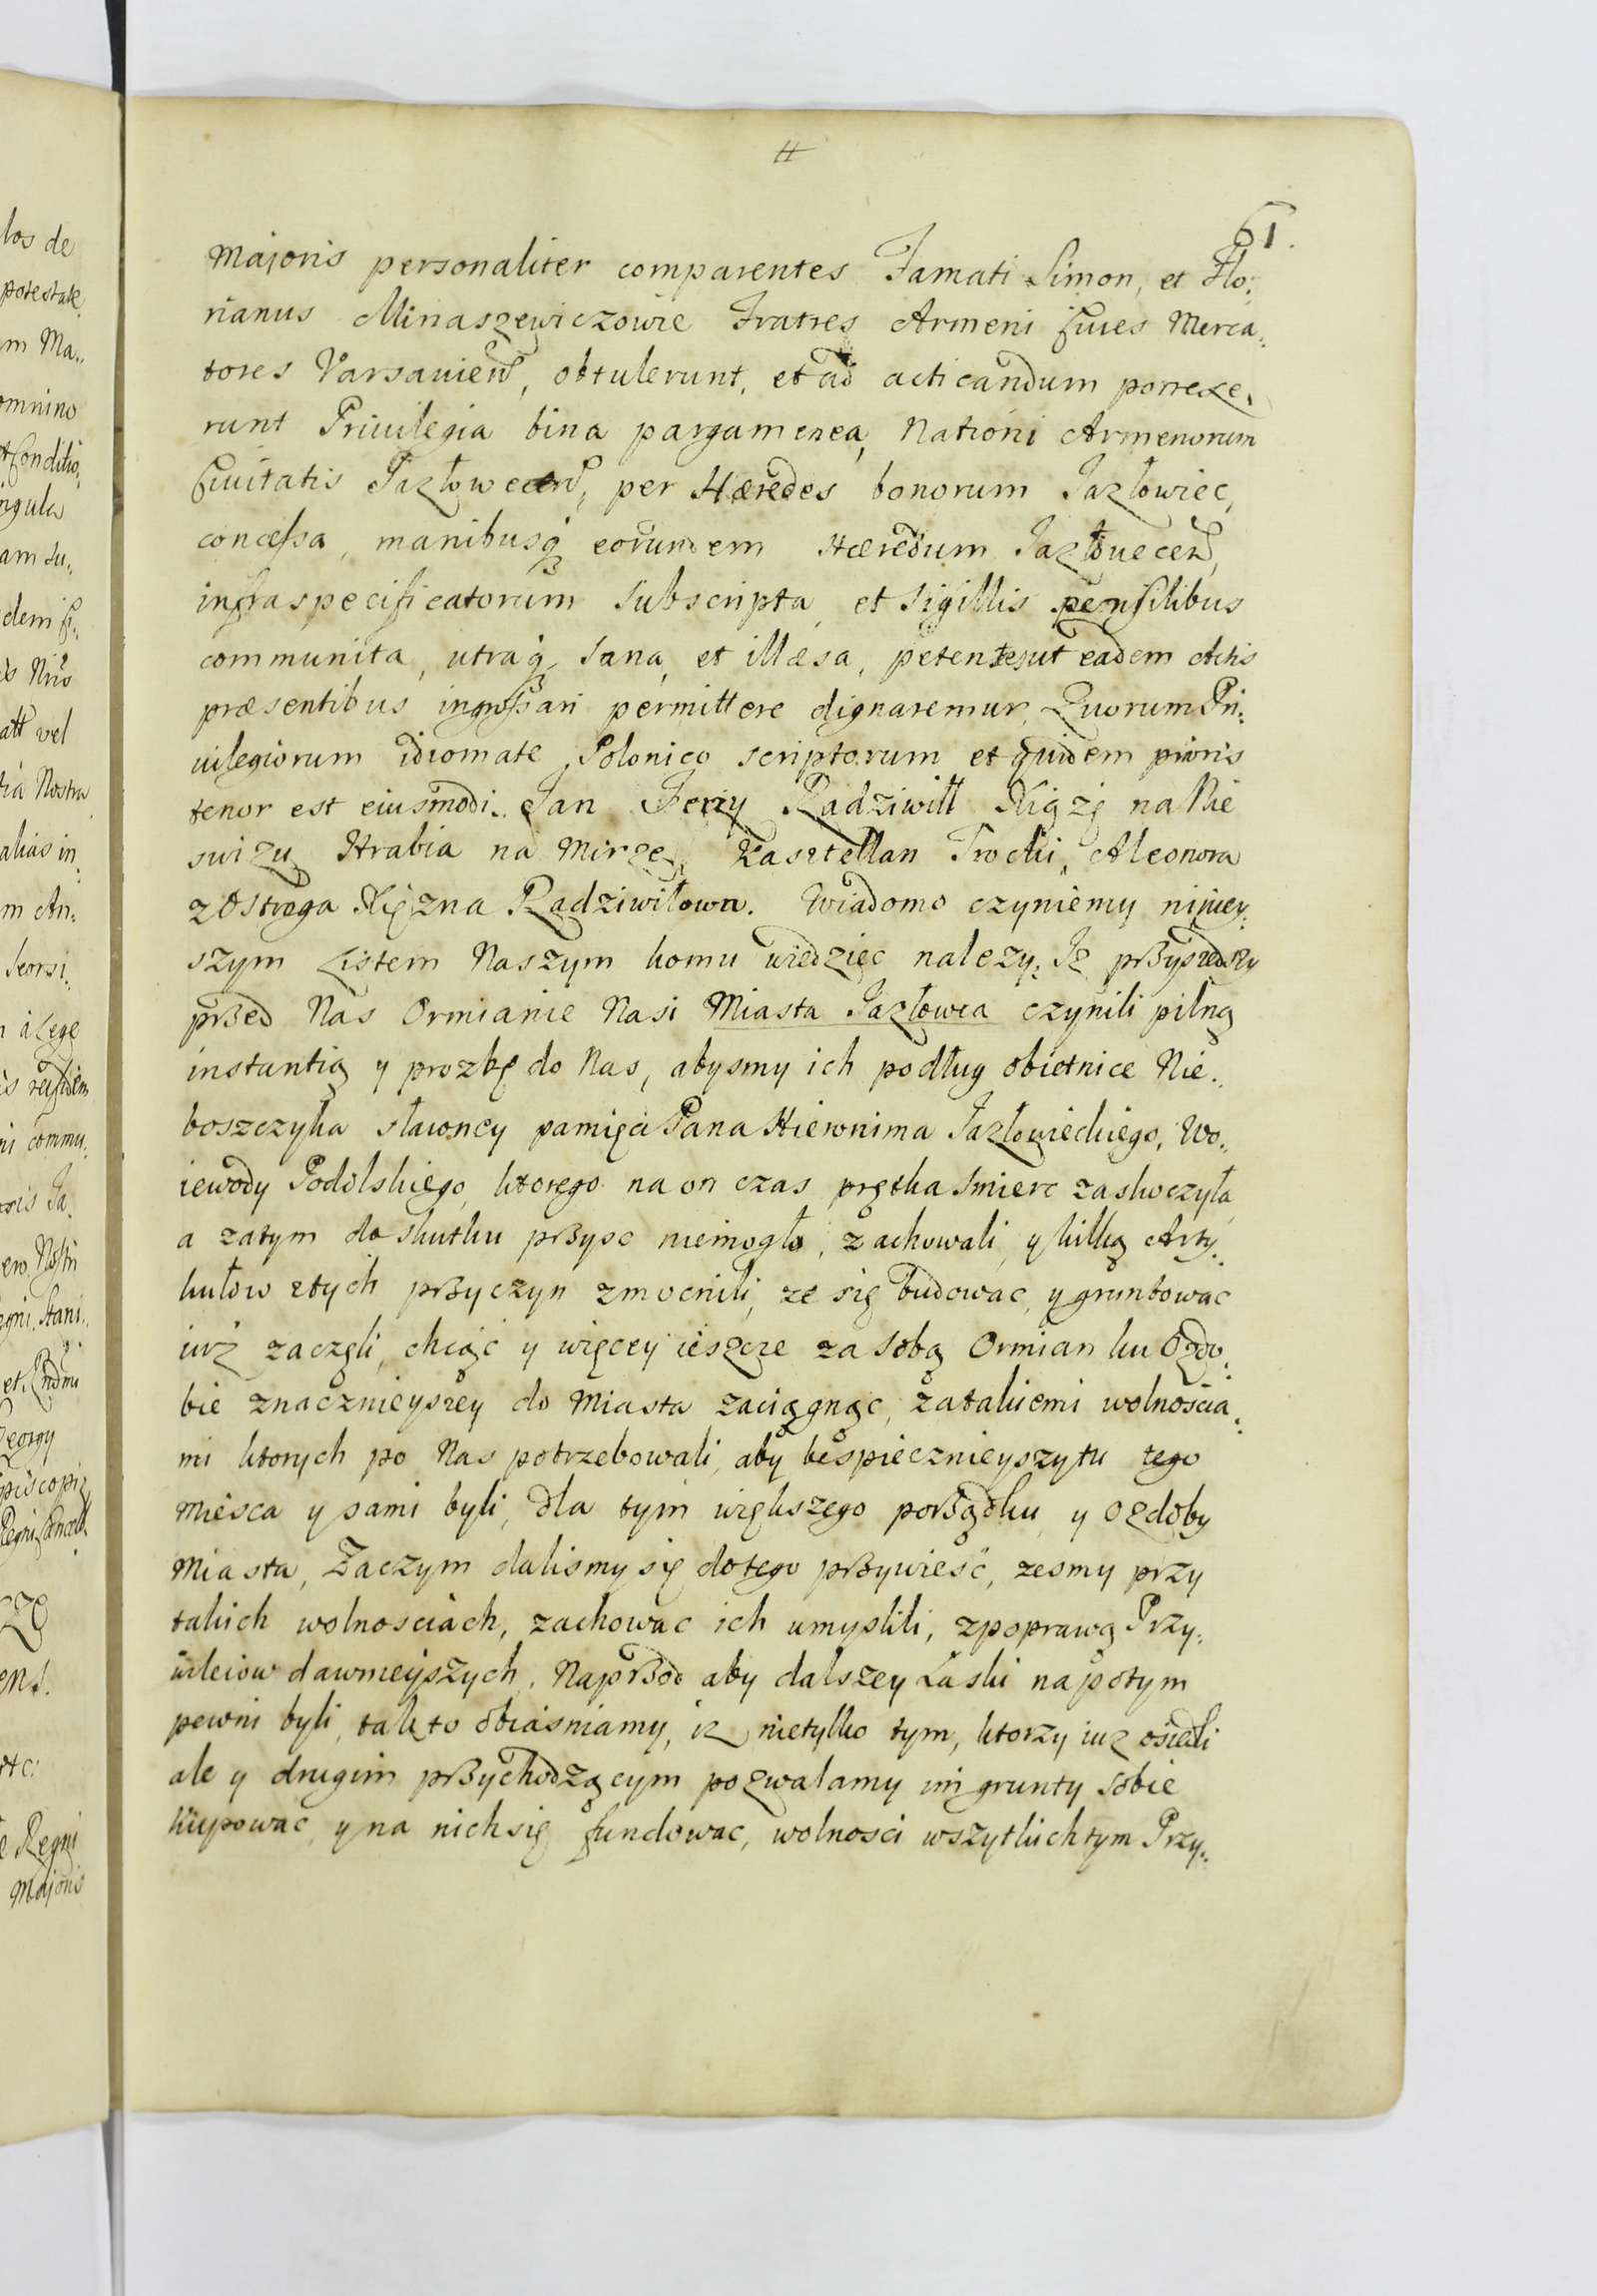 61.
Majoris personaliter comparentes Famati Simon, et Flo:
rianus Minaszewiczowie Fratres Armeni Cives Merca:
tores Varsavien, obtulerunt, et ad acticandum porrexe:
runt Privilegia bina pargamenea, Nationi Armenorum
Civitatis Jazłowecen, per Hæredes bonorum Jazłowiec,
concessa, manibusq eorundem Hæredum Jazłovecen,
infraspecificatorum subscripta, et Sigillis pensilibus
communita, utraq, sana, et illæsa, petentes ut eadem Actis
præsentibus ingrossari permittere dignaremur, Quorum Pri:
uilegiorum idiomate Polonico scriptorum et quidem prioris
tenor est eiusmodi. Jan Jerzy Radziwiłł Xiążę na Nie
swizu Hrabia na Mirze, Kasztellan Trocki, Aleonora
z Ostroga Xiężna Radziwiłowa. Wiadomo czyniemy niniey:
szym Listem Naszym komu wiedzięc nalezy; Iz przyszedszy
przed Nas Ormianie Nasi Miasta Jazłowca czynili pilną
instantią y prozbę do Nas, abysmy ich podług obietnice Nie:
boszczyka sławney pamięci Pana Hieronima Jazłowieckiego, Wo:
iewody Podolskiego, ktorego na on czas prętka smierc zaskoczyła,
a zatym do skutku przysc niemogło, zachowali, y kilką Arty:
kułow z tych przyczyn zmocnili, ze się budowac, y gruntowac
iuż zaczęli, chcąc y więcey ieszcze za sobą Ormian ku Ozdo:
bie znacznieyszey do Miasta zaciągnąc, za takiemi wolnoscia:
mi ktorych po Nas potrzebowali, aby bespiecznieyszy tu tego
miesca y sami byli, dla tym większego porządku, y ozdoby
Miasta, Zaczym dalismy się do tego przywiesc, zesmy przy
takich wolnosciach, zachowac ich umyslili, z poprawą Przy:
wileiow dawnieyszych. Naprzod aby dalszey Łaski na potym
pewni byli, tak to obiasniamy, iz nietylko tym, ktorzy iuz osiedli
ale y drugim przychodzącym pozwalamy im grunty sobie
kupowac, y na nich się fundowac, wolnosci wszytkich tym Przy: